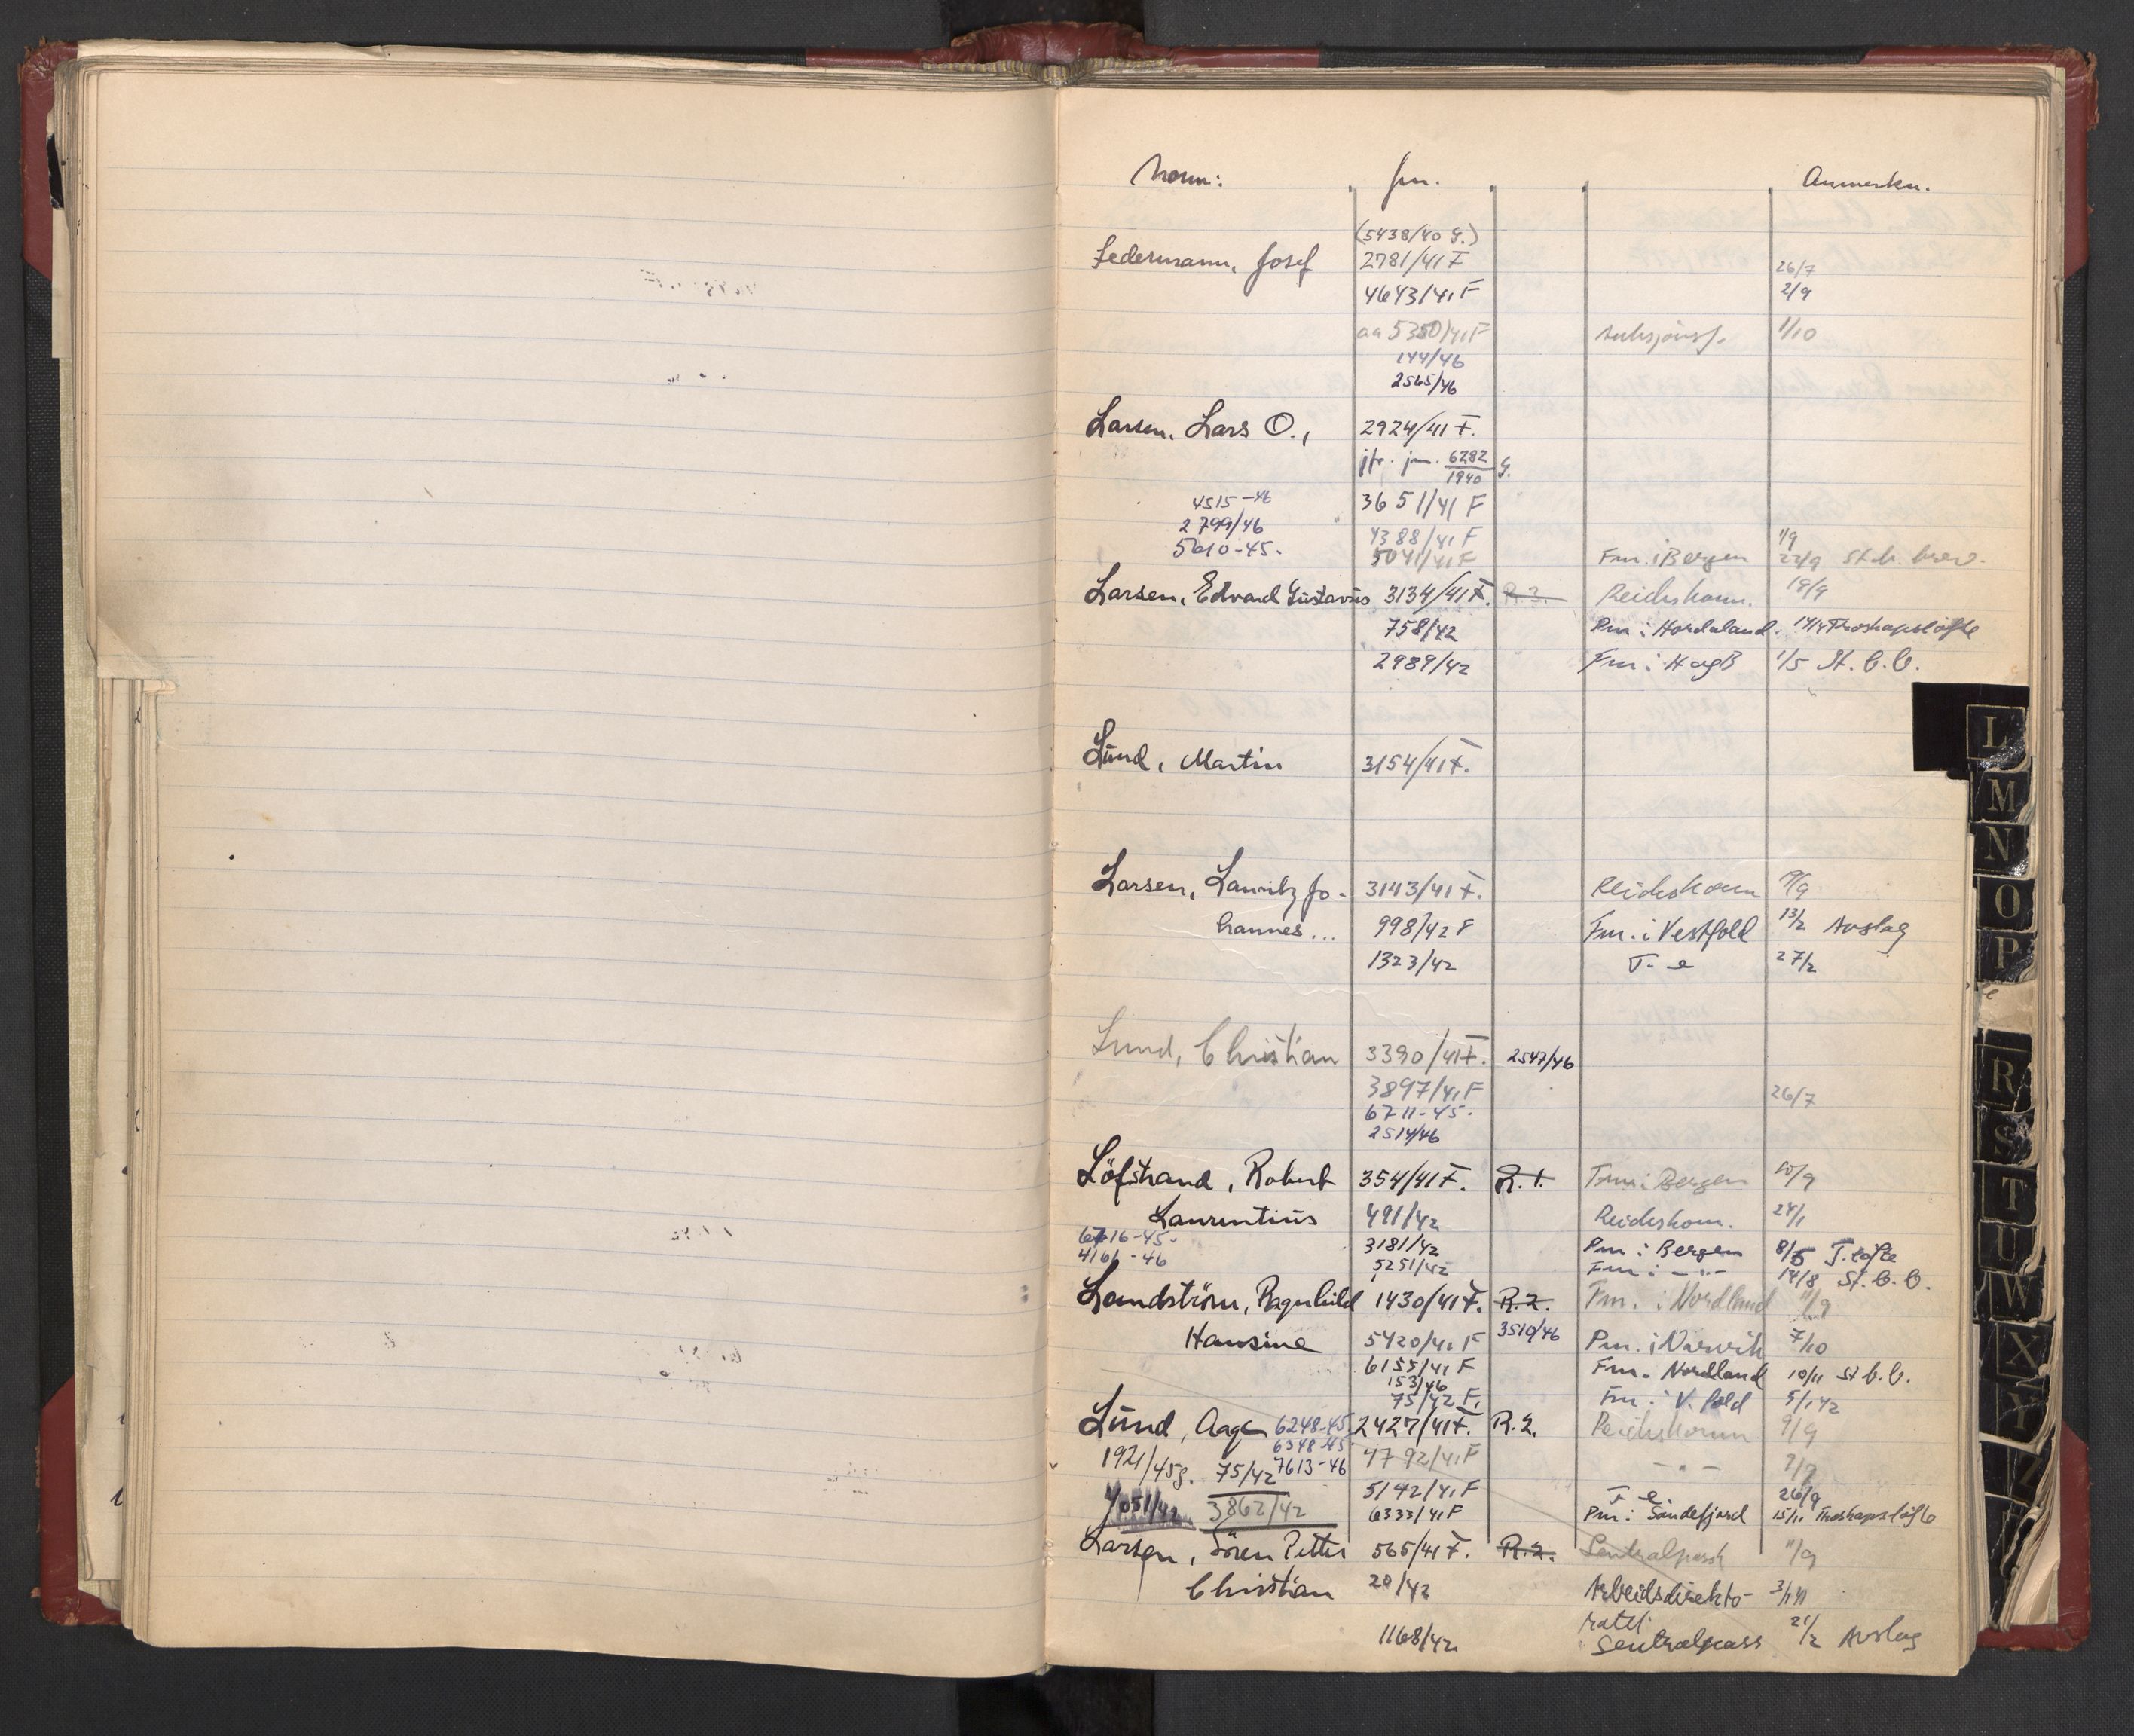 Navn: jnr. Anmerkn.
(5438/40 G.)
Ledermann, Josef 2781/41 F 26/7
4643/41 F 2/9
aa 5350/41 F 1/10
144/46
2565/46
Larsen, Lars O., 2924/41 F.
jfr. jnr. 6282/1940 G.
4515-46 3651/41 F
2799/46 4388/41 F 1/9
5610-45. 5041/41 F Fm. i Bergen 22/9 St.b. brev.
Larsen, Edvard Gustavus 3134/41 F. R.2. Reichskom. 19/9
758/42 Pm i Hordaland. 14/4 Troskapsløfte
2989/42 Fm i H og B 1/5 St. b. b.
Lund, Martin 3154/41 F.
Larsen, Lauritz Jo- 3143/41 F. Reichskom 19/9
hannes... 998/42 F Fm. i Vestfold 13/2 Avslag
1323/42 27/2
Lund, Christian 3390/41 F. 2547/46
3897/41 F 26/7
6711-45.
2514/46
Löfstrand, Robert 354/41 F. R.1. Fm i Bergen 10/9
Laurentius 491/42 Reichskom. 24/1
6716-45. 3181/42 Pm i Bergen 8/5 T. løfte
4166-46 5251/42 Fm i -"- 14/8 St. b. b.
Landström, Ragnhild 1430/41 F. R.2. Fm. i Nordland 11/9
Hansine 5420/41 F 3510/46 Pm. i Narvik 7/10
6155/41 F Fm. Nordland 10/11 St b. b.
153/46
75/42 F. Fm i V. fold 5/1 42
Lund, Aage 6248-45 2427/41 F. R.2. Reichskomm 9/9
6348-45
1921/45 g. 75/42 7613-46 4792/41 F -"-
5142/41 F 26/9
7051/42 3862/42 6333/41 F Pm i Sandefjord 15/11 Troskapsløfte
Larsen, Sören Petter 565/41 F. R.2. Sentralpassk 11/9
Christian 20/42 Arbeidsdirekto-
ratet
1168/42 Sentralpass 21/2 Avslag
L
M
N
O
P
R
S
T
U
W
X
Y
Z